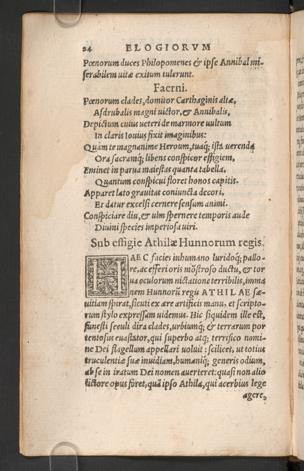 24 ELOGIORVM
Pœnorum duces Philopomenes & ipse Annibal mi-
serabilem uitæ exitum tulerunt.
Faerni.
Pœnorum clades, domitor Carthaginis altæ,
Asdrubalis magni uictor, & Annibalis,
Depictum cuius ueteri de marmore uultum
In claris Iouius fixit imaginibus:
Quàm te magnanime Heroum, tuaq; ista uerenda
Ora sacramq; libens conspicor effigiem,
Eminet in parua maiestas quanta tabella,
Quantum conspicui floret honos capitis.
Apparet lato grauitas coniuncta decori,
Et datur excelsi cernere sensum animi.
Conspiciare diu, & uim spernere temporis aude
Diuini species imperiosa uiri.
Sub effigie Athilæ Hunnorum regis.
HAEC facies inhumano luridoq; pallo-
re, ac efferioris mōstroso ductu, & tor
ua oculorum nictatione terribilis, imma
nem Hunnorū regis ATHILAE sæ-
uitiam spirat, sicuti ex ære artificis manu, et scripto-
rum stylo expressam uidemus. Hic siquidem ille est,
funesti seculi dira clades, urbiumq; & terrarum por
tentosus euastator, qui superbo atq; terrifico nomi-
ne Dei flagellum appellari uoluit: scilicet, ut totius
truculentiæ suæ inuidiam, humaniq; generis odium,
ab se in iratum Dei nomen auerteret: quasi non alio
lictore opus foret, quā ipso Athila, qui acerbius lege
agere,